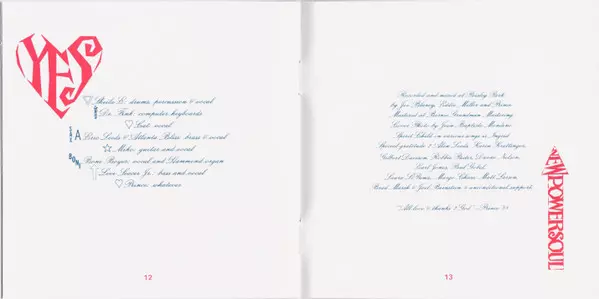 YES
Sheila E. drums, percussion & vocal
Dr. Fink: computer, keyboards
Cat: vocal
Eric Leeds & Atlanta Bliss: brass & vocal
Miko: guitar and vocal
BONI
Boni Boyer: vocal and Hammond organ
Levi Seacer Jr.: bass and vocal
Prince: whatever
12
Recorded and mixed at Paisley Park
by Joe Blaney, Eddie Miller and Prince
Mastered at Bernie Grundman Mastering
Cover Photo by Jean Baptiste Mondino
Spirit Child in various songs is Ingrid
Special gratitude 2 Alan Leeds, Karen Krattinger,
Gilbert Davison, Robbie Paster, Duane Nelson,
Earl Jones, Paul
Matt Larson,
"All love & thanks 2 God" - Prince
13
NEWPOWERSOUL